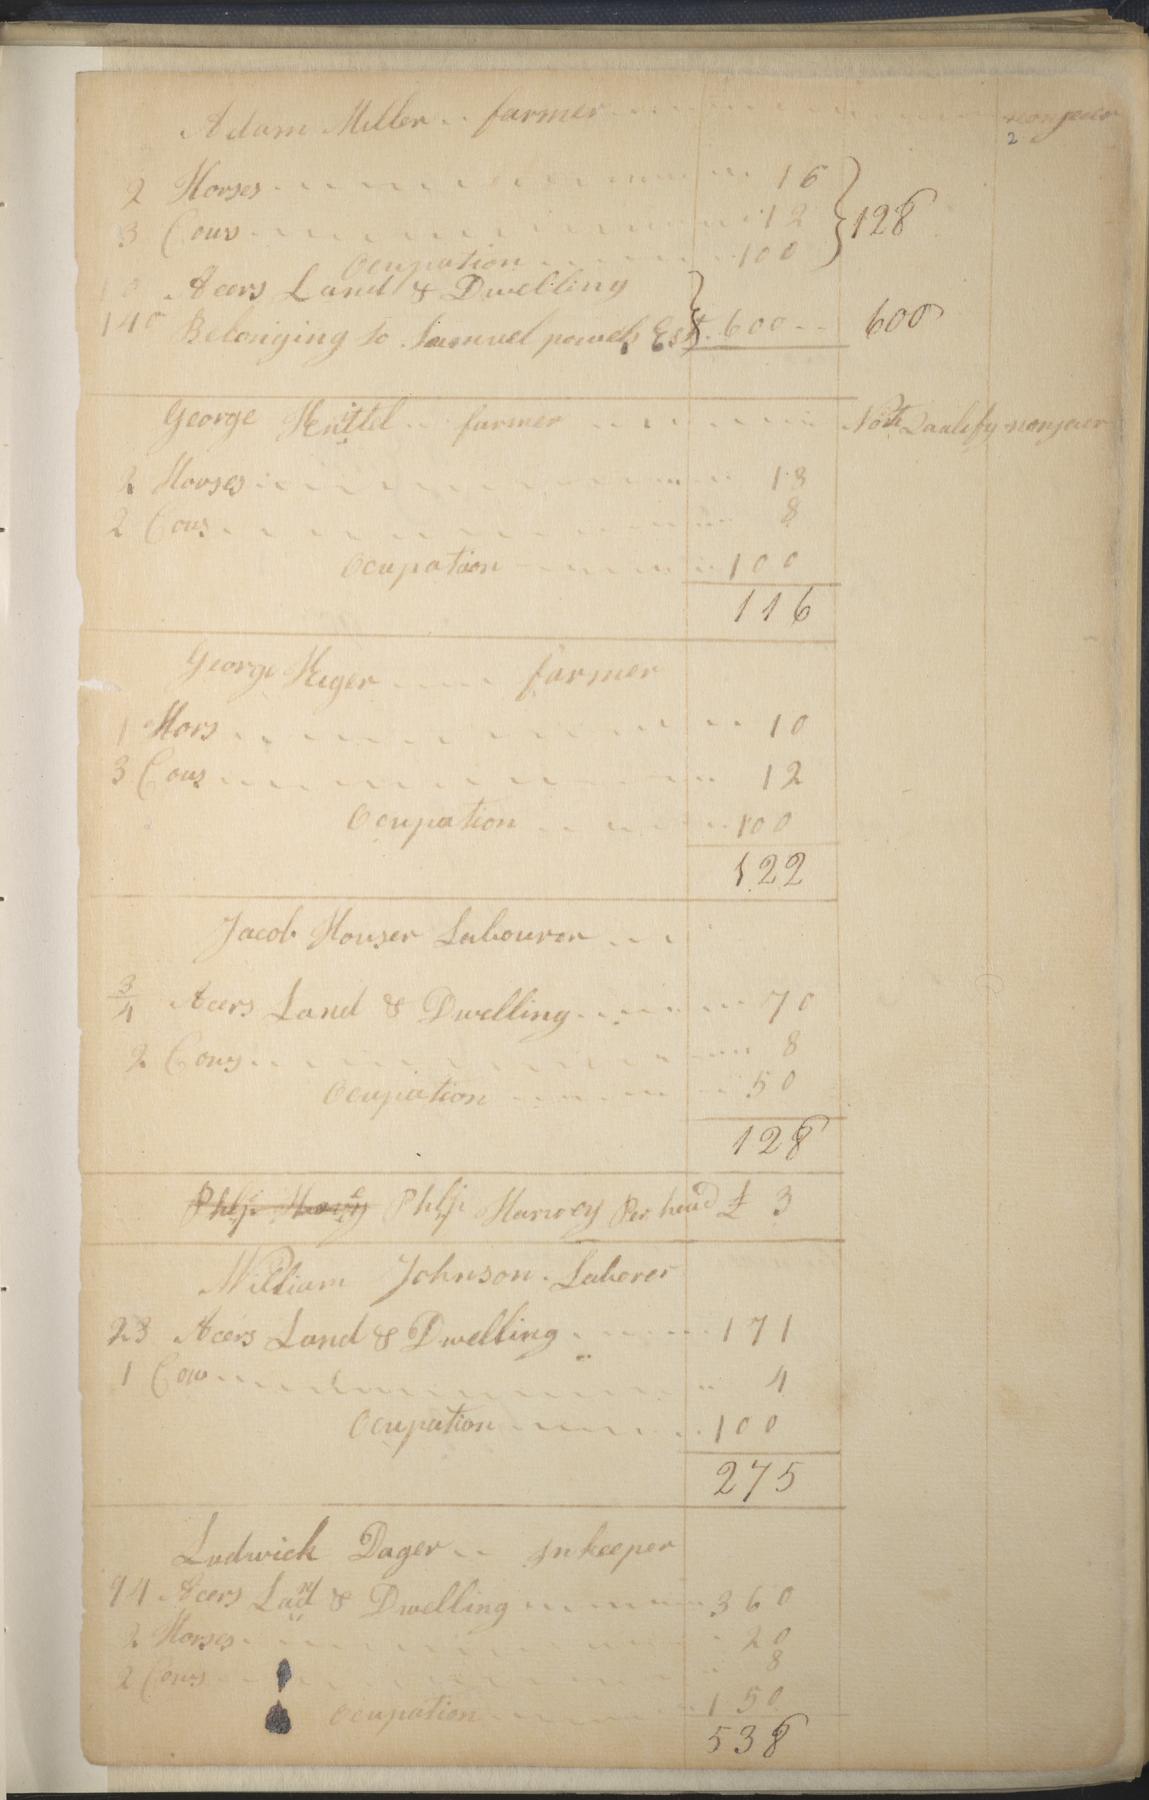 Adam Miller .. farmer nonjuer
2
2 Horses 16
3 Cous 12 } 128
Ocupation 100
10 Acers Land & Dwelling
140 Belonging to Samuel powels Est. } 600 600
George Henttel farmer Not Qualify nonjuer
2 Horses 18
2 Cous 8
Ocupation 100
116
George Heger farmer
1 Hors 10
3 Cous 12
Ocupation 100
122
Jacob Houser Labourer
3/4 Acers Land & Dwelling 70
2 Cows 8
Ocupation 50
128
Phlip Harvey Per head £ 3
William Johnson . Laborer
23 Acers Land & Dwelling 171
1 Cow 4
Ocupation 100
275
Ludwick Dager .. Inkeeper
94 Acers Land & Dwelling 360
2 Horses 20
2 Cows 8
Ocupation 150
538